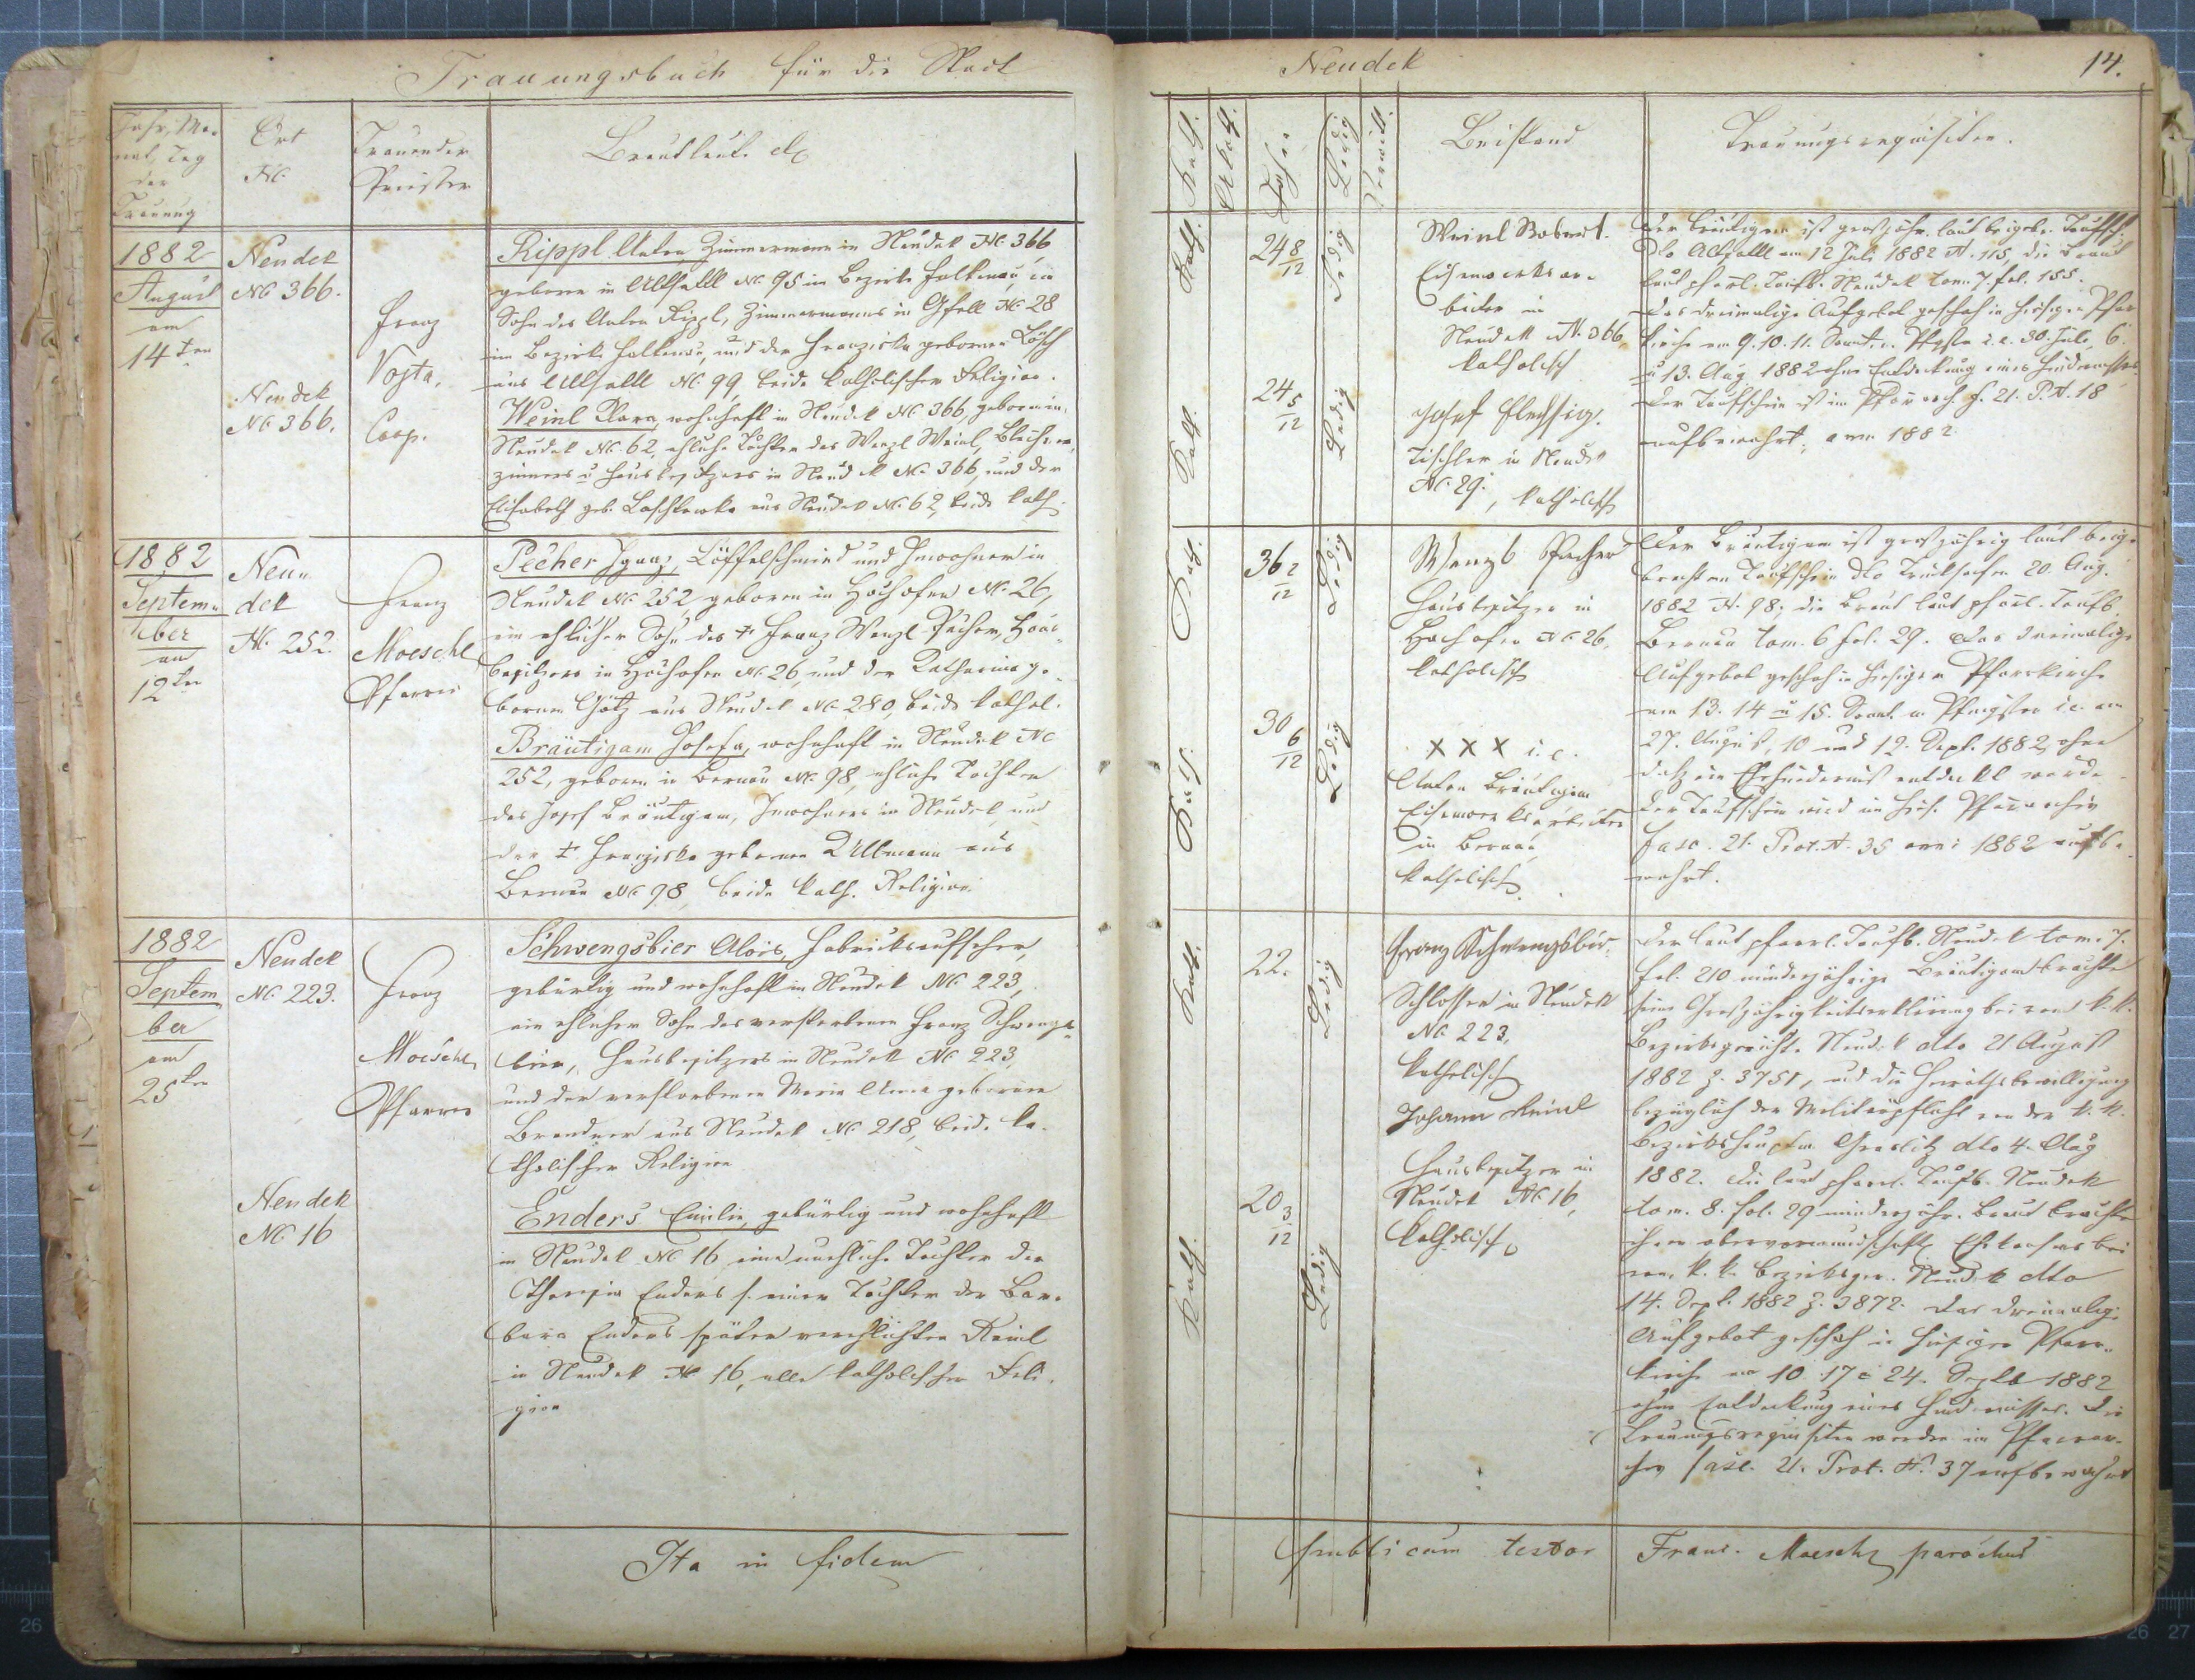 Trauungsbuch für die Stadt Neudek
14.
Jahr, Mo-
nat, Tag
der
Trauung
Ort
No.
Trauender
Priester
Brautleute etc
1882
August
am
14ten
Neudek
No 366.
Neudek
No 366.
Franz
Vojta,
Coop.
Rippl Anton, Zimmermann in Neudek No. 366,
geboren in Altsattl No. 95 im Bezirke Falkenau, ein
Sohn des Anton Rippl, Zimmermanns in Gfell No. 28
im Bezirke Falkenau, und der Franziska gebornen Lösch
aus Altsattl No. 99, beide katholischer Religion.
Weinl Klara, wohnhaft in Neudek No 366, geboren in
Neudek No 62, eheliche Tochter des Wenzl Weinl,
u Hausbesitzers in Neudek No 366, und der
Elisabeth geb. aus Neudek No. 62, beide kath.
1882
Septem-
ber
am
12ten
Neu-
dek
No. 252.
Franz
Moeschl
Pfarrer
Pecher Ignaz, Löffelschmied und Inwohner in
Neudek No 252, geboren in Hochofen No. 26,
ein ehlicher Sohn des + Franz Wenzl Pecher, Haus-
besitzers in Hochofen No 26, und der Katharina ge-
bornen Götz aus Neudek No 280, beide kathol.
Bräutigam Josefa, wohnhaft in Neudek No
252, geboren in Bernau No. 98, ehliche Tochter
des Josef Bräutigam, Inwohners in Neudek, und
der + Franziska gebornen Ullmann aus
Bernau No 98, beide kath. Religion
1882
Septem
ber
am
25ten
Neudek
No 223.
Neudek
No 16
Franz
Moeschl
Pfarrer
Schwengsbier Alois, Fabriksaufseher,
gebürtig und wohnhaft in Neudek No 223,
ein ehlicher Sohn des verstorbenen Franz Schwengs-
bier, Hausbesitzers in Neudek No 223,
und der verstorbenen Maria Anna gebornen
Brandner aus Neudek No 218, beide ka-
tholischer Religion
Enders Emilie, gebürtig und wohnhaft
in Neudek No 16 eine unehliche Tochter der
Theresia Enders einer Tochter der Bar-
bara Enders später verehlichten Reinl
in Neudek No 16, alle katholischer Reli-
gion
Ita in fidem
Kath.
Akath.
Jahre
Ledig
Verwitt.
Beistand
Trauungsrequisiten.
Kath.
24 8/12
Ledig
Kath.
24 5/12
Ledig
Weinl Robert.
Eisenwerksar-
beiter in
Neudek No. 366,
katholisch
Josef Flechsig.
Tischler in Neudek
No. 29., katholisch
Der Bräutigam ist großjähr. laut beigebr. Taufsch.
dto Altsattl am 12 Juli 1882 N. 115, die Braut
laut pfarrl. Taufb. Neudek tom. 7. fol. 155.
Das dreimalige Aufgebot geschah in hiesiger Pfar-
kirche am 9. 10. 11. Sonnt. n. Pfgsten i.e. 30. Juli, 6.
u 13. Aug. 1882 ohne Entdeckung eines Hindernisses.
Der Taufschein ist im Pfararch. f. 21. P.N. 18
aufbewahrt, anni 1882.
Kath.
36 2/12
Ledig
Kath.
30 6/12
Ledig
Wenzl Pecher
Hausbesitzer in
Hochofen No. 26,
katholisch
X X X i.e.
Anton Bräutigam
Eisenwerksarbeiter
in Bernau
katholisch.
Der Bräutigam ist großjährig laut beige-
brachten Taufschein dto Trinksaifen 20. Aug.
1882 N. 98; die Braut laut pfarrl. Taufb.
Bernau tom. 6 fol. 29. Das dreimalige
Aufgebot geschah in hiesiger Pfarrkirche
am 13. 14 u 15. Sonnt. n. Pfingsten i.e. am
27. August, 10 und 12. Sept. 1882, ohne
daß ein Ehehinderniß entdeckt wurde.
Der Taufschein wird im hies. Pfararchiv
fasc. 21. Prot. N. 35 anni 1882 aufbe-
wahrt.
Kath.
22.
Ledig
Kath.
20 3/12
Ledig
Franz Schwengsbier
Schlosser in Neudek
No 223,
katholisch
Johann Reinl
Hausbesitzer in
Neudek No. 16,
katholisch
Der laut pfarrl. Taufb. Neudek tom. 7.
fol. 210 minderjährige Bräutigam brachte
seine Großjährigkeitserklärung bei vom k.k.
Bezirksgericht Neudek dto 21 August
1882 Z. 3751, und die Heirathsbewilligung
bezüglich der Militärpflicht von der k.k.
Bezirkshauptm. Graslitz dto 4. Aug
1882. Die laut pfarrl. Taufb. Neudek
tom. 8. fol. 29 minderjähr. Braut brachte
ihren obervormundschaftl. Ehekonsens bei
vom k.k. Bezirksger. Neudek dto
14. Sept. 1882 Z. 3872. Das dreimalige
Aufgebot geschah in hiesiger Pfarr-
kirche am 10. 17 u 24. Septb 1882
ohne Entdeckung eines Hindernisses. Die
Trauungsrequisiten werden im Pfarrar-
chiv fasc. 21. Prot. No. 37 aufbewahrt
publicam testor Franc. Moeschl parochus
26
26 27